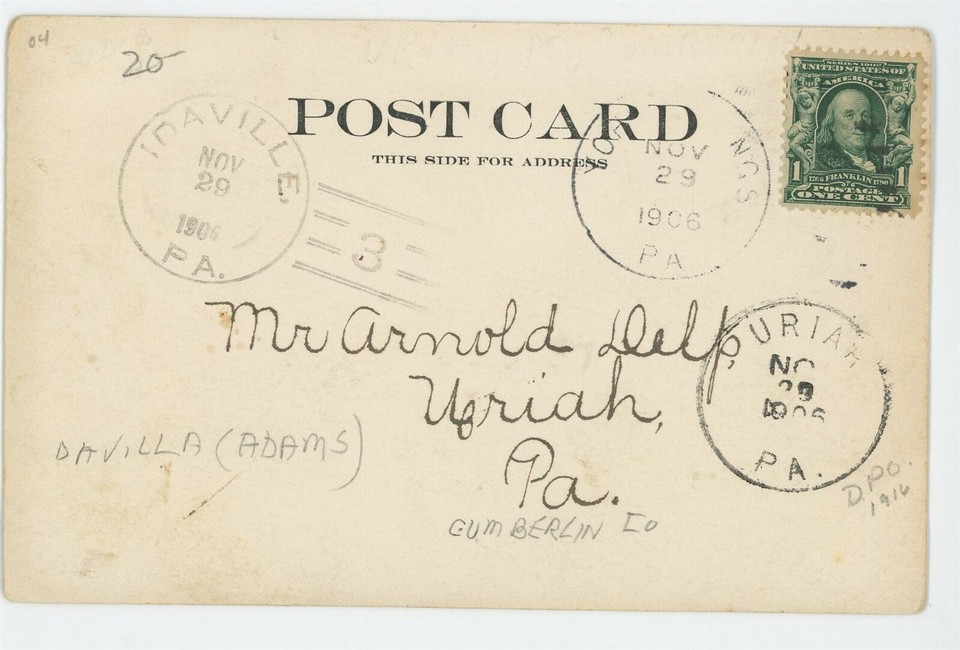 04
20
POST CARD
THIS SIDE FOR ADDRESS
IDAVILLE
NOV
29
1906
PA.
3
NGS
NOV
29
1906
PA
SERIES 1902
UNITED STATES OF
AMERICA
1706 FRANKLIN 1790
POSTAGE
1 1
ONE CENT
Mr Arnold Delp
Uriah,
Pa.
URIAH
29
1906
PA.
DAVILLA (ADAMS)
CUMBERLIN CO
D.P.O.
1916